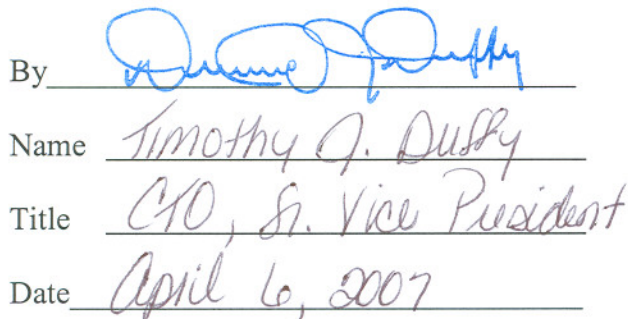 By
Name Timothy J. Duffy
Title CTO, Sr. Vice President
Date April 6, 2007